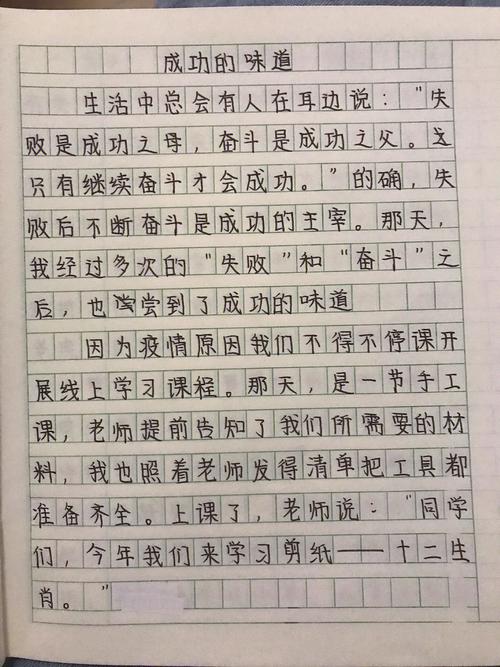 成功的味道
生活中总会有人在耳边说：“失
败是成功之母，奋斗是成功之父。这
只有继续奋斗才会成功。”的确，失
败后不断奋斗是成功的主宰。那天，
我经过多次的“失败”和“奋斗”之
后，也尝到了成功的味道
因为疫情原因我们不得不停课开
展线上学习课程。那天，是一节手工
课，老师提前告知了我们所需要的材
料，我也照着老师发得清单把工具都
准备齐全。上课了，老师说：“同学
们，今年我们来学习剪纸——十二生
肖。”